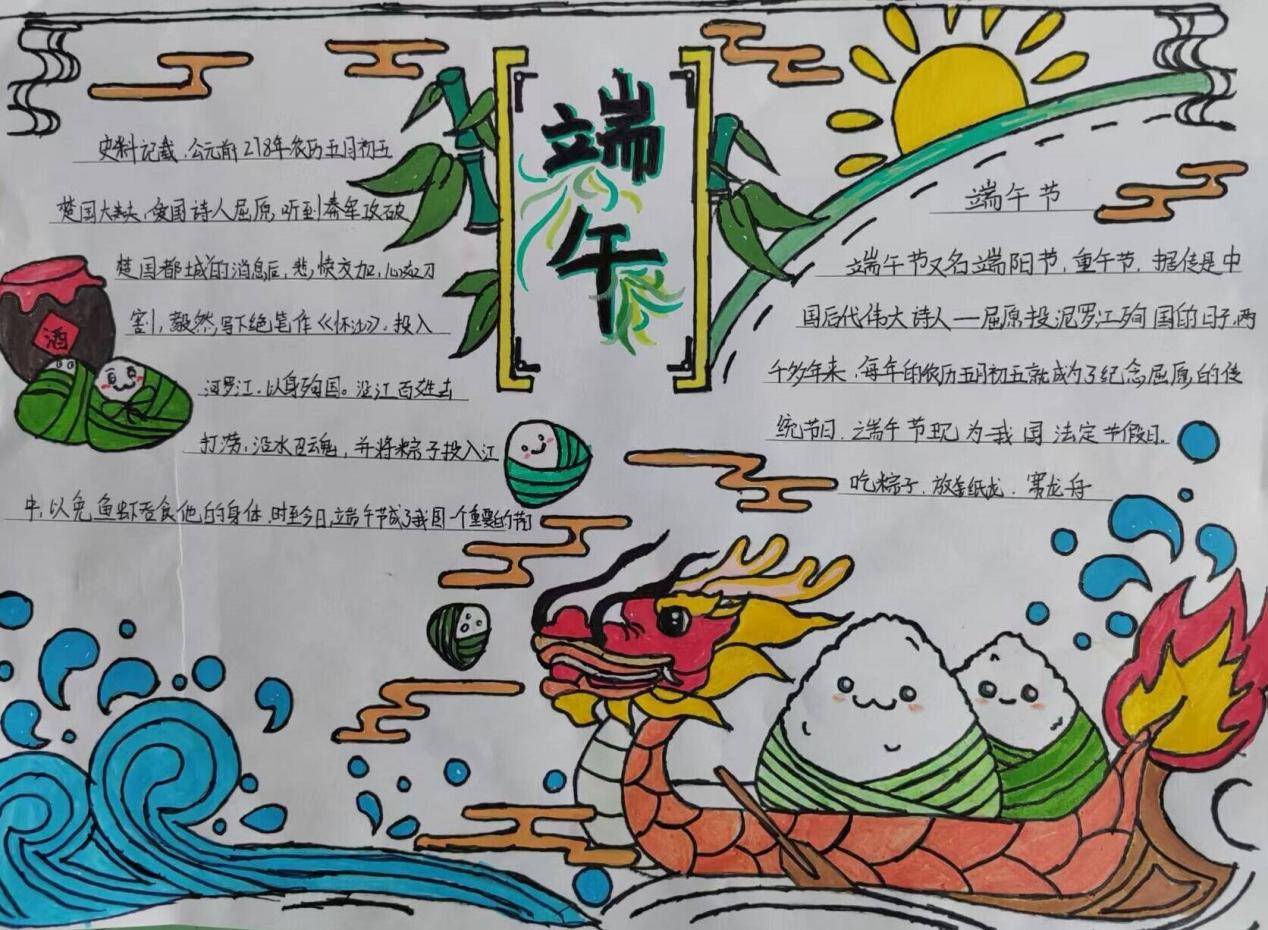 端午
史料记载.公元前278年农历五月初五
楚国大夫、爱国诗人屈原听到秦军攻破
楚国都城的消息后,悲愤交加,心如刀
割,毅然写下绝笔作《怀沙》,投入
河罗江,以身殉国。沿江百姓去
打捞,没水召魂,并将粽子投入江
中,以免鱼虾吞食他的身体,时至今日,端午节成了我国一个重要的节日
酒
端午节
端午节又名端阳节,重午节,据传是中
国后代伟大诗人一屈原投泥罗江殉国的日子,两
千多年来,每年的农历五月初五就成为了纪念屈原的传
统节日,端午节现为我国法定节假日。
吃粽子,放纸龙,赛龙舟